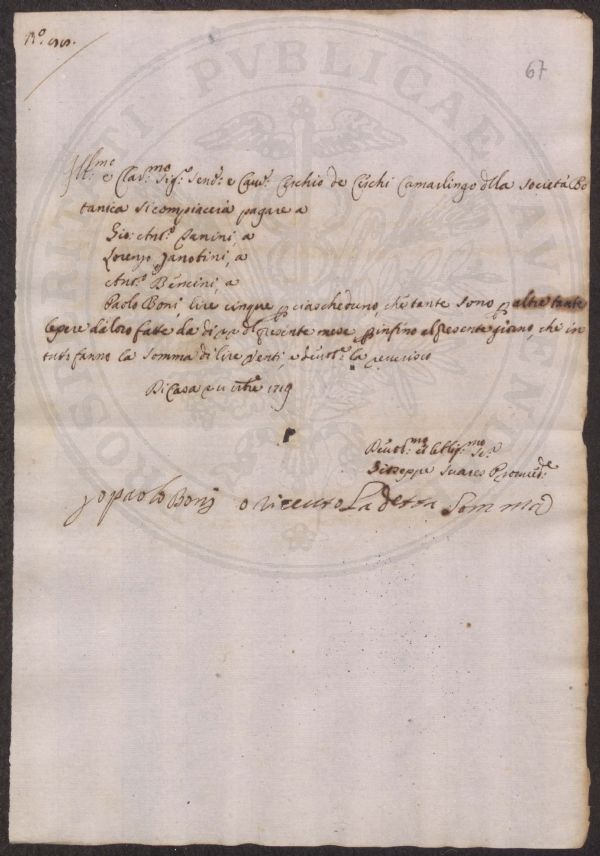 67
Ill:mo e Clar:mo Sig:r Send:e e Cav:r Cerchio de Cerchi Camarlingo della Società Bo
tanica si compiacerà pagare a
Gio: Ant:o Panini, a
Lorenzo Zanobini, a
Ant:o Bencini, a
Paolo Boni, lire cinque per ciascheduno, che tante sono per altre tante
opere da loro fatte da di del presente mese per infino al presente giorno, che in
tutti fanno la somma di lire venti, e devot:e la reverisco
Di Casa 1719
Devot:mo et Obblig:mo Se:re
Giuseppe Suares Proved:re
Io paolo Boni o riceuto La detta Somma